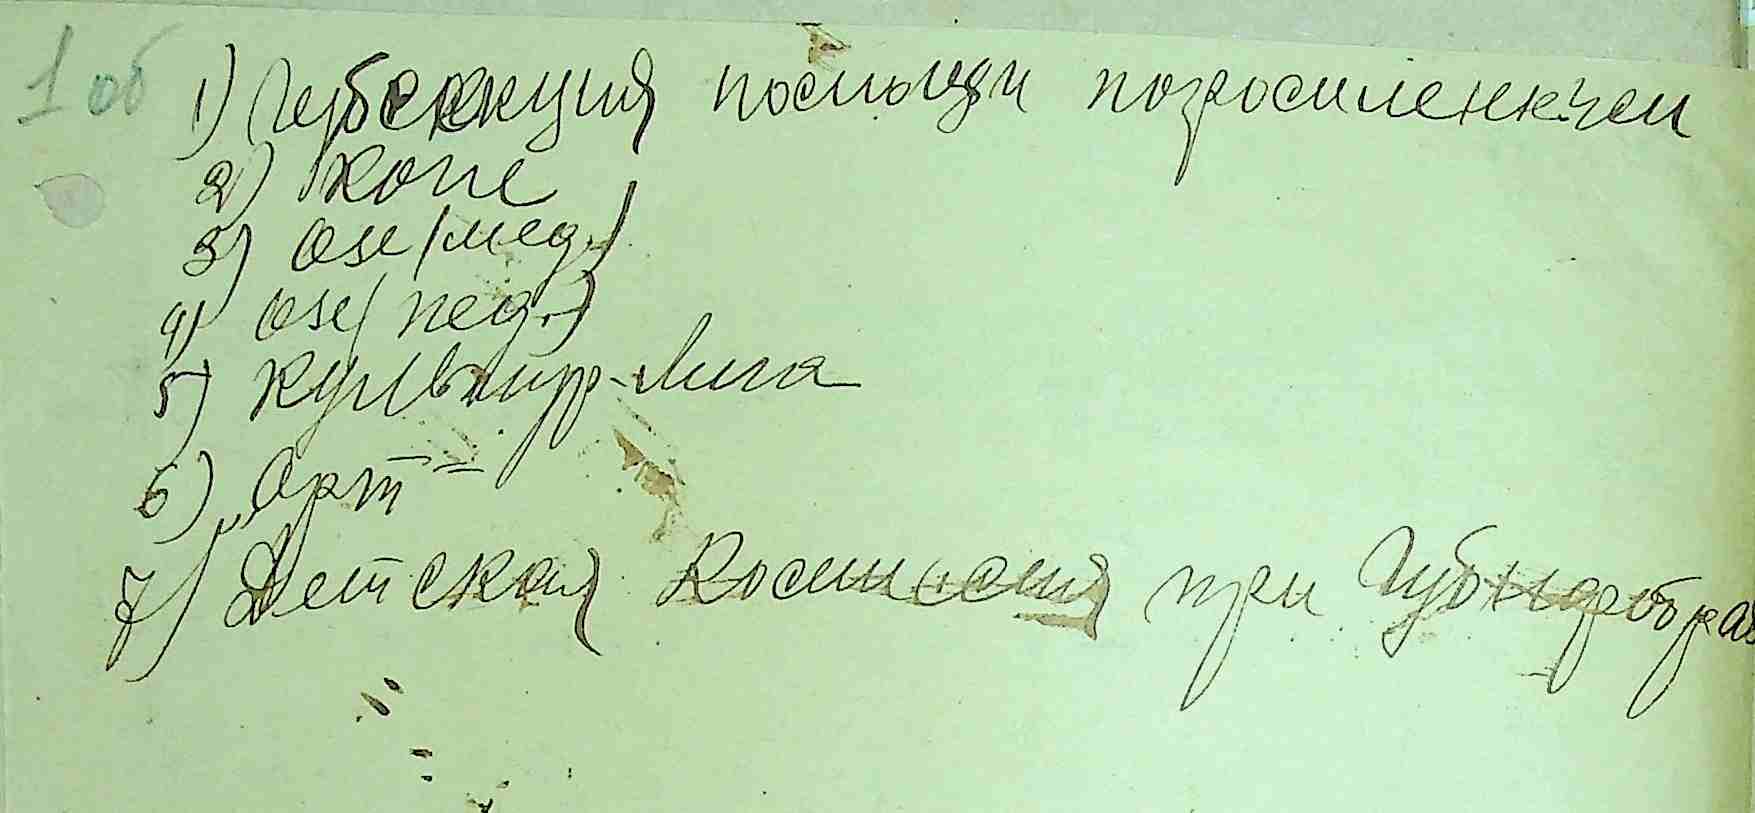 1 об
1) Губсекция помощи погромленным
2) Копе
3) Озе (мед.)
4) Озе (пед.)
5) Культур-Лига
6) „Орт"
7) Детская Комиссия при Губнаробраз